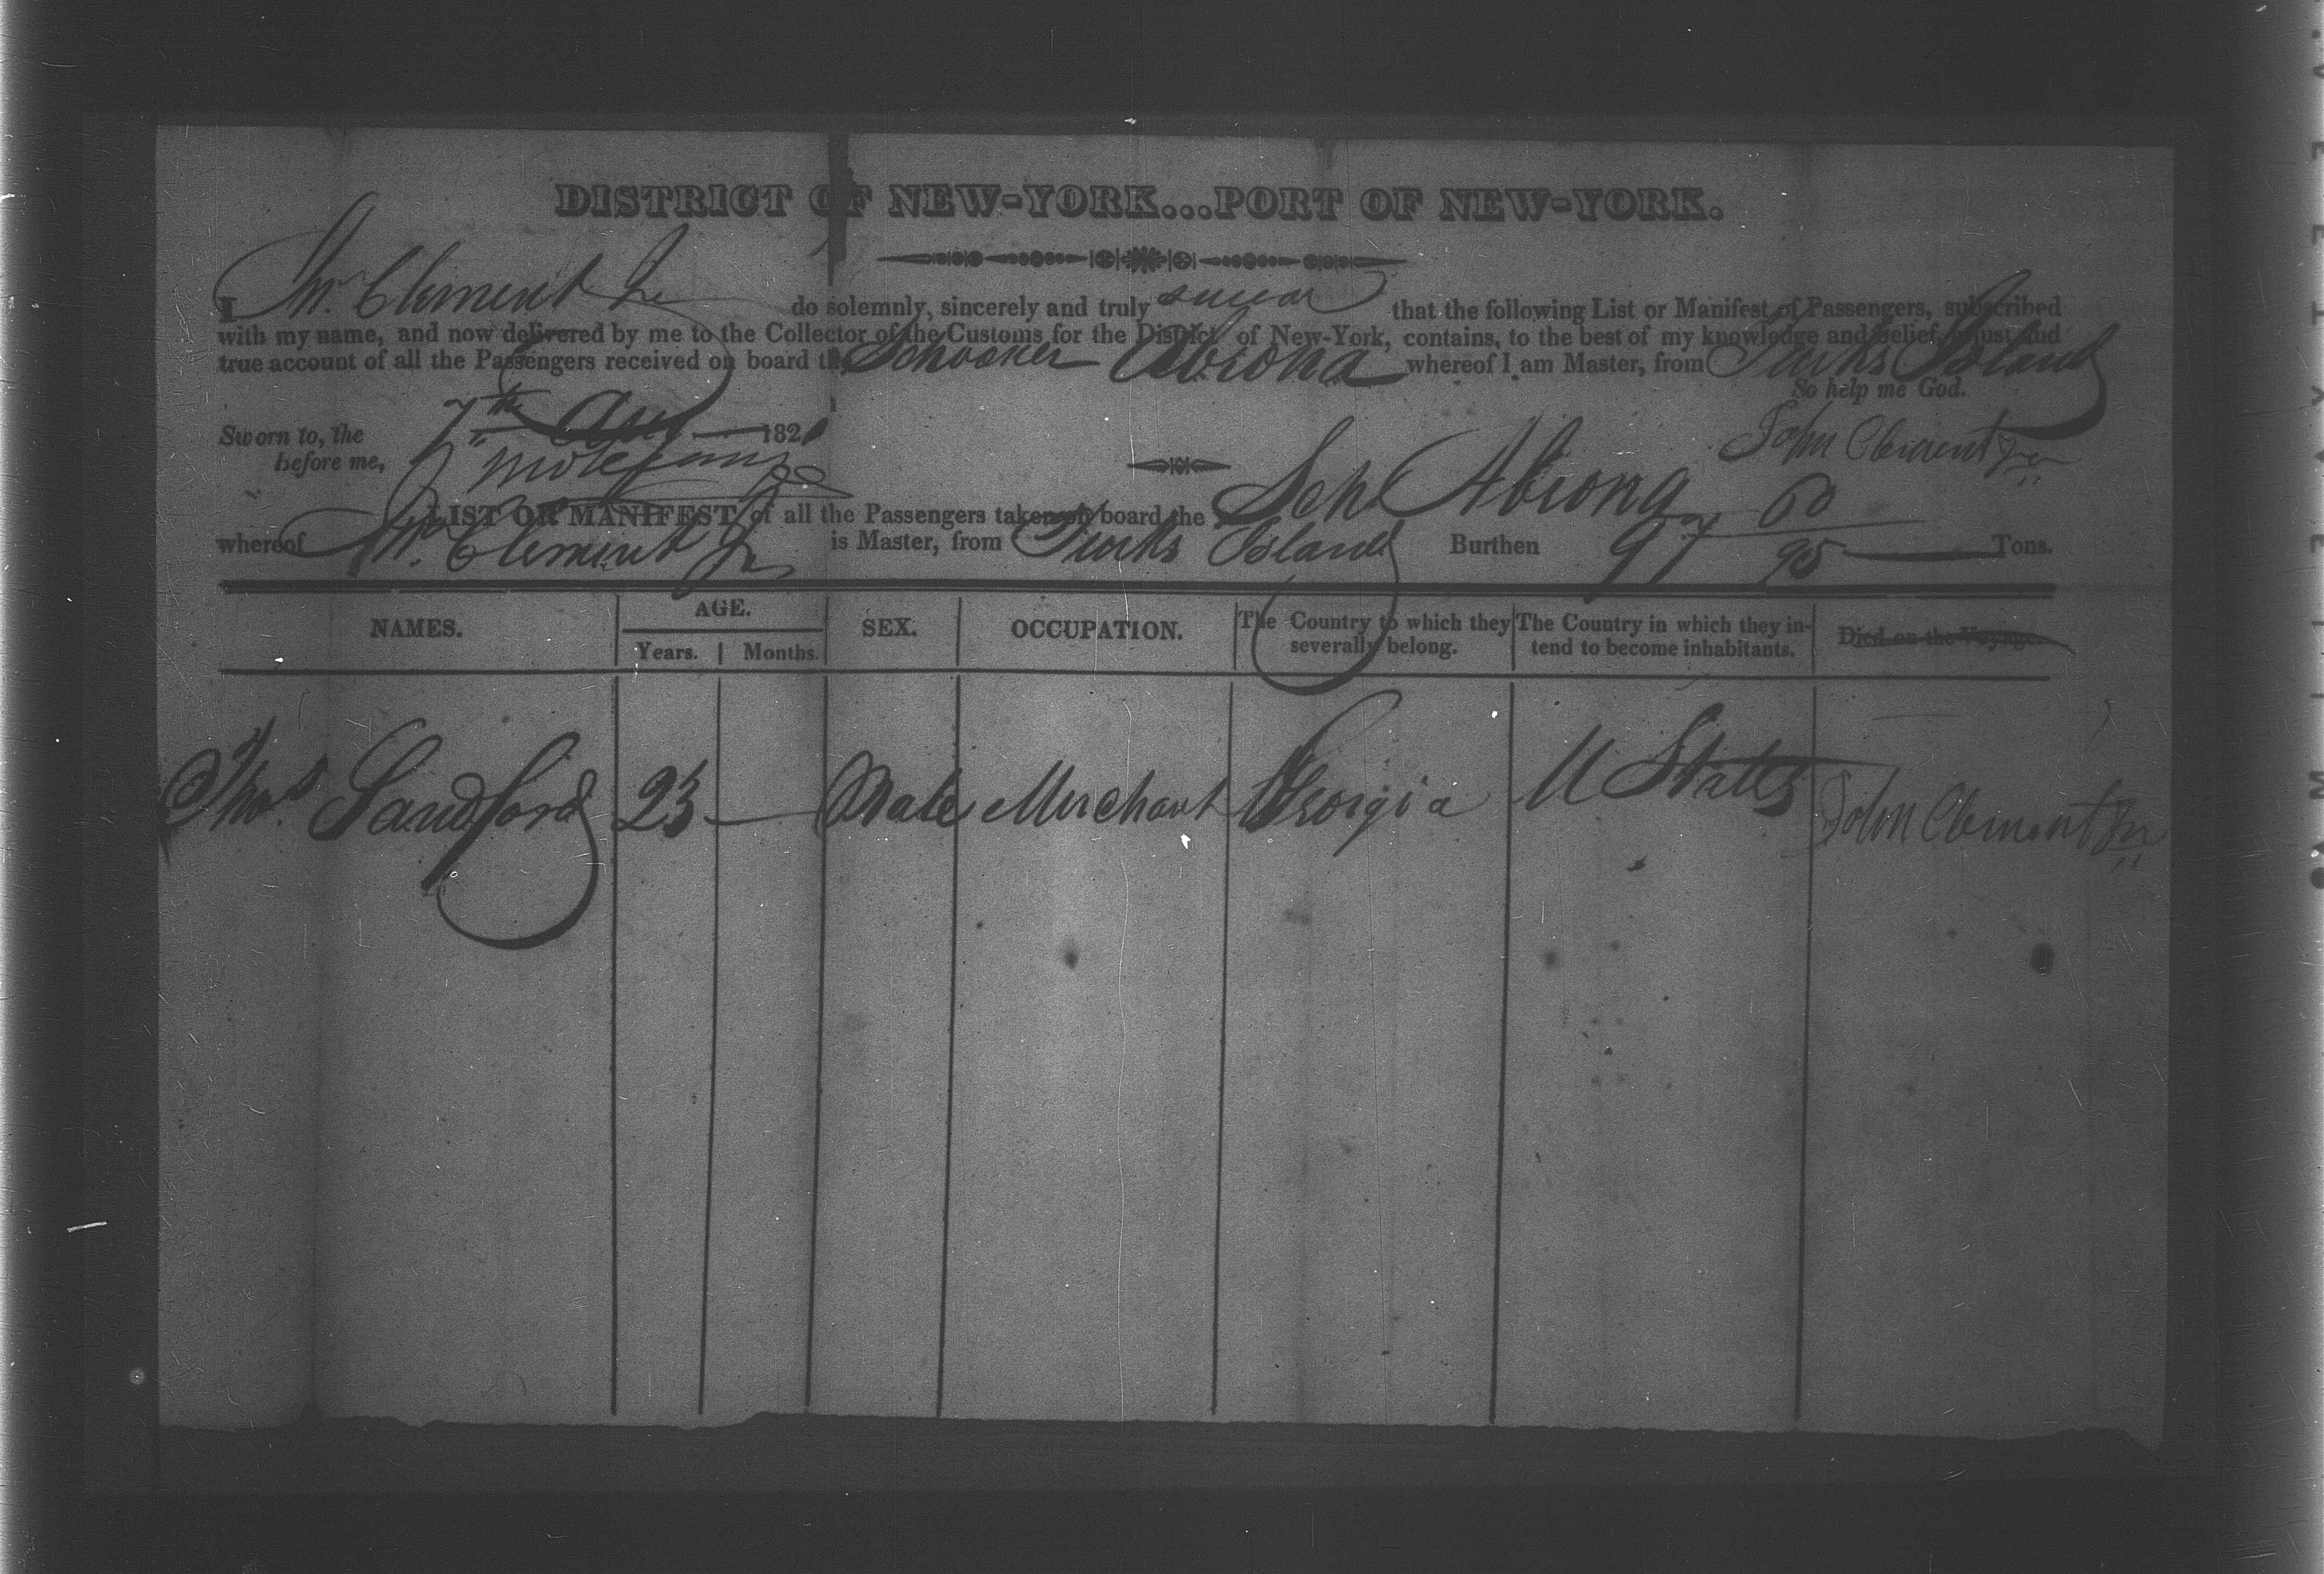 DISTRICT OF NEW-YORK...PORT OF NEW-YORK.
I Jn. Clement Jr do solemnly, sincerely and truly swear that the following List or Manifest of Passengers, subscribed
with my name, and now delivered by me to the Collector of the Customs for the District of New-York, contains, to the best of my knowledge and belief, a just and
true account of all the Passengers received on board the Schooner Abiona whereof I am Master, from Turks Island
So help me God.
Sworn to, the 7th Aug 1821
before me,
John Clement Jr
LIST OR MANIFEST of all the Passengers taken on board the Sch Abiona
whereof Jn. Clement Jr is Master, from Turks Island Burthen 97 60/95 Tons.
NAMES. AGE. Years. Months. SEX. OCCUPATION. The Country to which they severally belong. The Country in which they intend to become inhabitants. Died on the Voyage.
Thos Sandford 23 — Male Merchant Georgia U States
John Clement Jr